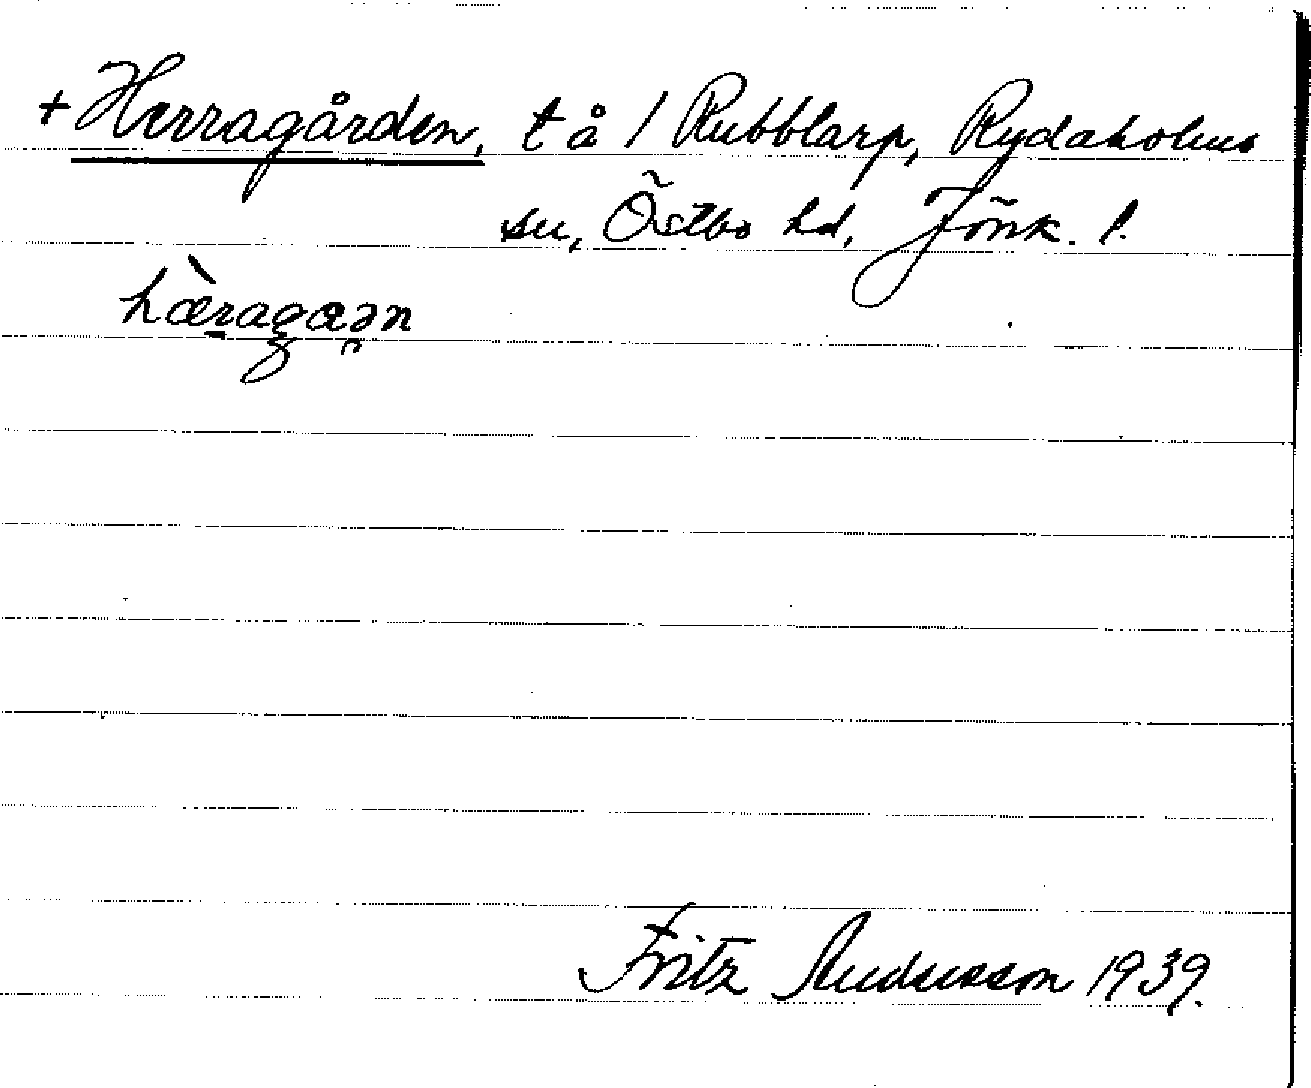 + Herragården, t å / Rubblarp, Rydaholms
sn, Östbo hd, Jönk. l.
hæ̀ragaən
Fritz Andersson 1939.